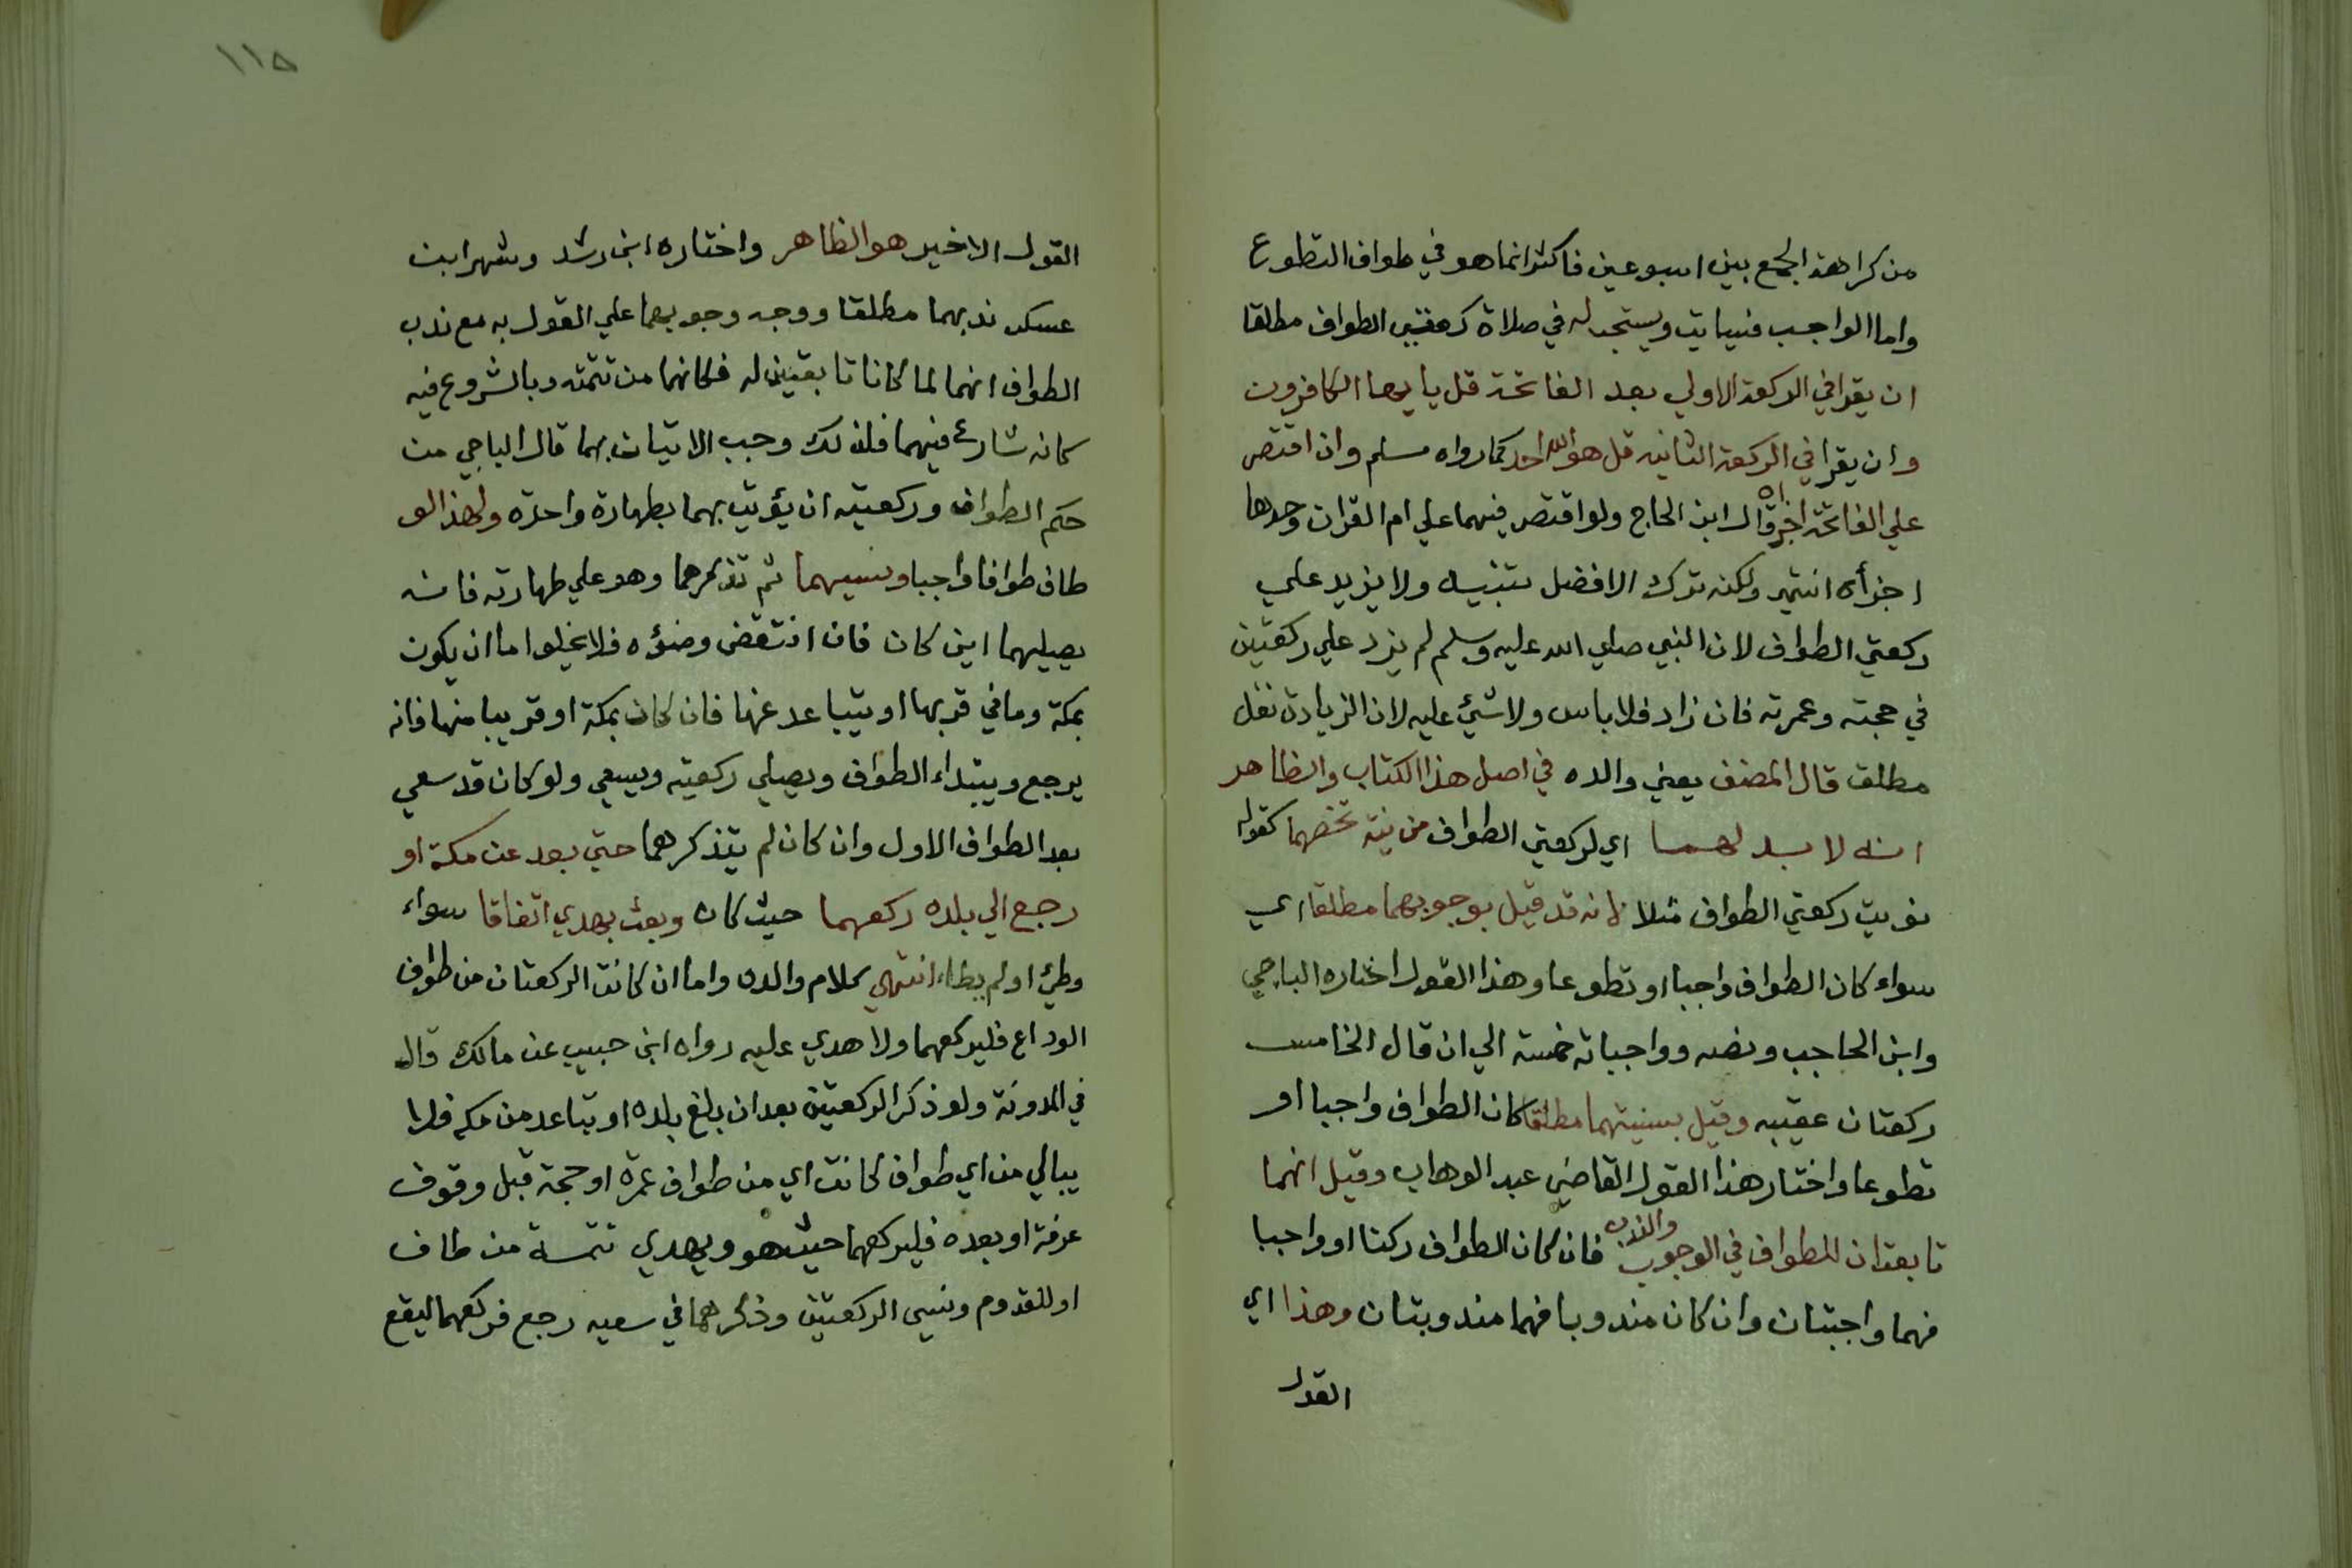 من كراهة الجمع بين اسبوعين فاكثر انما هو في طواف التطوع
واما الواجب فسياتي ويستحب له في صلاة ركعتي الطواف مطلقا
ان يقرا في الركعة الاولي بعد الفاتحة قل يا يها الكافرون
وان يقرا في الركعة الثانيه قل هو الله احد كما رواه مسلم وان اقتصر
علي الفاتحة اجزاه قال ابن الحاج ولو اقتصر فيهما علي ام القران وحدها
اجزأه انتهي ولكنه ترك الافضل تنبيه ولا يزيد علي
ركعتي الطواف لان النبي صلي الله عليه وسلم لم يزد علي ركعتين
في حجته وعمرته فان زاد فلا باس ولا شئ عليه لان الزيادة نفل
مطلق قال المصنف يعني والده في اصل هذا الكتاب والظاهر
انه لا بد لهما اي لركعتي الطواف من نية تخصهما كقوله
نويت ركعتي الطواف مثلا لانه قد قيل بوجوبهما مطلقا اي
سواء كان الطواف واجبا او تطوعا وهذا القول اختاره الباجي
وابن الحاجب ونصه وواجباته خمسة الي ان قال الخامس
ركعتان عقيبه وقيل بسنيتهما مطلقا كان الطواف واجبا او
تطوعا واختار هذا القول القاضي عبد الوهاب وقيل انهما
تابعتان للطواف في الوجوب والندب فان كان الطواف ركنا او واجبا
فهما واجبتان وان كان مندوبا فهما مندوبتان وهذا اي
القول
١١٥
القول الاخير هو الظاهر واختاره ابن رشد وشهر ابن
عسكر ندبهما مطلقا ووجه وجوبهما علي القول به مع ندب
الطواف انهما لما كانا تابعتين له فكانهما من تتمته وبالشروع فيه
كانه شارع فيهما فلذلك وجب الاتيان بهما قال الباجي من
حكم الطواف وركعتيه ان يؤتي بهما بطهارة واحدة ولهذا لو
طاف طوافا واجبا ونسيهما ثم تذكرهما وهو علي طهارته فانه
يصليهما اين كان فان انتقض وضؤه فلا يخلوا اما ان يكون
بمكة وما في قربها او يتباعد عنها فان كان بمكة او قريبا منها فانه
يرجع ويبتداء الطواف ويصلي ركعتيه ويسعي ولو كان قد سعي
بعد الطواف الاول وان كان لم يتذكرهما حتي بعد عن مكة او
رجع الي بلده ركعهما حيث كان وبعث بهدي اتفاقا سواء
وطئ او لم يطاء انتهي كلام والده واما ان كانت الركعتان من طواف
الوداع فليركعهما ولا هدي عليه رواه ابن حبيب عن مالك قال
في المدونة ولو ذكر الركعتين بعد ان بلغ بلده او تباعد من مكه فلا
يبالي من اي طواف كانت اي من طواف عمرة او حجة قبل وقوف
عرفة او بعده فليركعهما حيث هو ويهدي تتمة من طاف
او للقدوم ونسي الركعتين وذكرهما في سعيه رجع فركعهما ليقع